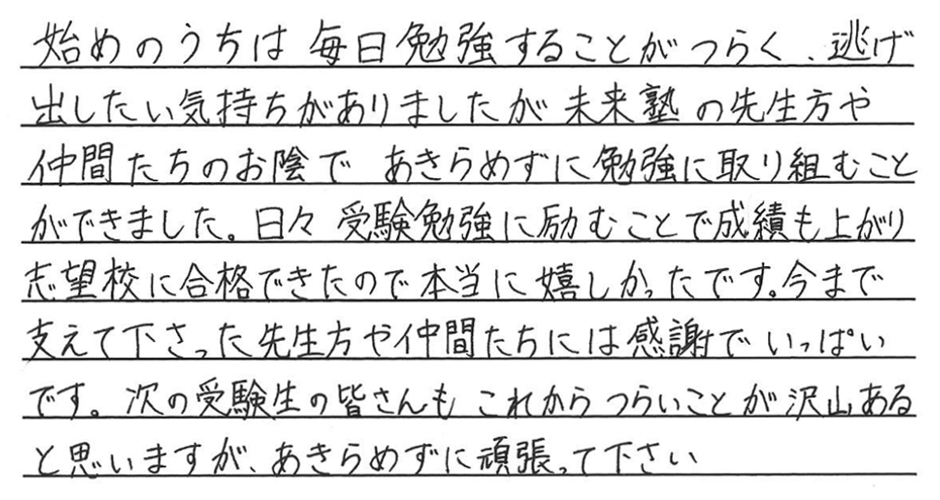 始めのうちは毎日勉強することがつらく、逃げ
出したい気持ちがありましたが未来塾の先生方や
仲間たちのお陰であきらめずに勉強に取り組むこと
ができました。日々受験勉強に励むことで成績も上がり
志望校に合格できたので本当に嬉しかったです。今まで
支えて下さった先生方や仲間たちには感謝でいっぱい
です。次の受験生の皆さんもこれからつらいことが沢山ある
と思いますが、あきらめずに頑張って下さい